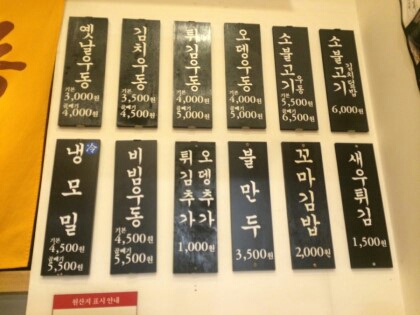 옛날우동
기본
3,000원
곱빼기
4,000원
김치우동
기본
3,500원
곱빼기
4,500원
튀김우동
기본
4,000원
곱빼기
5,000원
오뎅우동
기본
4,000원
곱빼기
5,000원
소불고기
우동
기본
5,500원
곱빼기
6,500원
소불고기
김치덮밥
6,000원
냉모밀
冷
기본
4,500원
곱빼기
5,500원
비빔우동
기본
4,500원
곱빼기
5,500원
오뎅추가
튀김추가
1,000원
불만두
3,500원
꼬마김밥
2,000원
새우튀김
1,500원
원산지 표시 안내